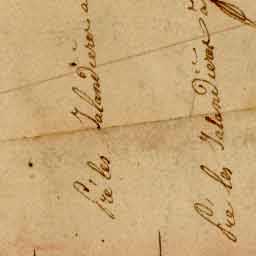 fre les Jalandieres a
fre les Jalandieres a